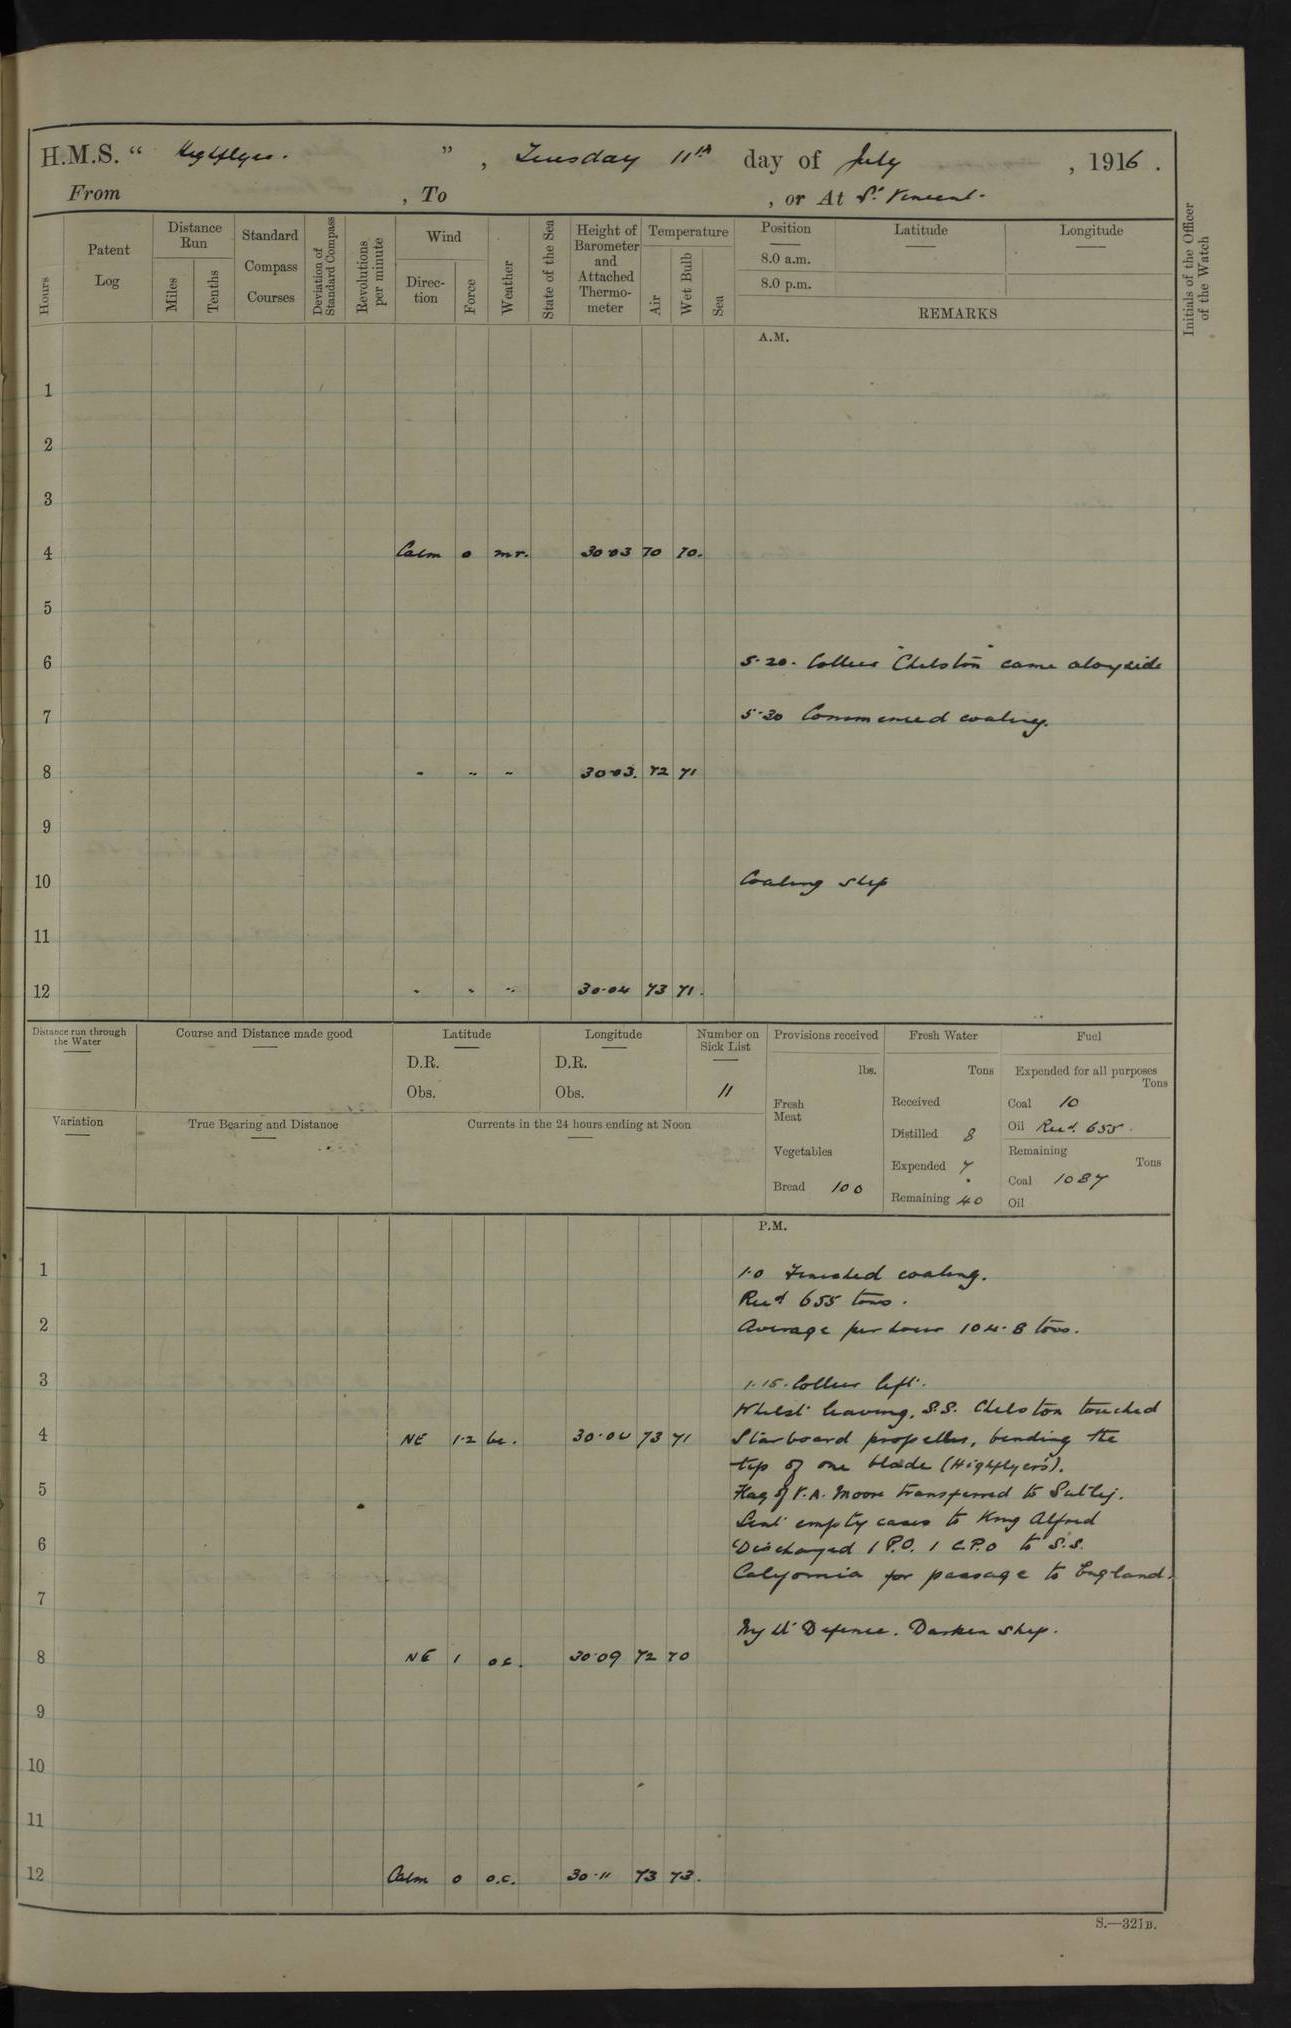 H.M.S. “ Highflyer. ” , Tuesday 11th day of July , 1916 .
From , To , or At St Vincent.
Hours
Patent Log
Distance Run
Miles
Tenths
Standard Compass Courses
Deviation of Standard Compass
Revolutions per minute
Wind
Direc- tion
Force
Weather
State of the Sea
Height of Barometer and Attached Thermo- meter
Temperature
Air
Wet Bulb
Sea
Position
Latitude
Longitude
8.0 a.m.
8.0 p.m.
REMARKS
Initials of the Officer of the Watch
A.M.
1
2
3
4 Calm 0 mr. 30.03 70 70.
5
6 5.20. Collier "Chelston" came alongside
7 5.30 Commenced coaling.
8 " " " 30.03. 72 71
9
10 Coaling ship
11
12 " " " 30.04 73 71.
Distance run through the Water
Course and Distance made good
Latitude
D.R.
Obs.
Longitude
D.R.
Obs.
Number on Sick List
11
Provisions received
lbs.
Fresh Meat
Vegetables
Bread 100
Fresh Water
Tons
Received
Distilled 8
Expended 7
Remaining 40
Fuel
Expended for all purposes
Tons
Coal 10
Oil Recd. 655.
Remaining
Tons
Coal 1087
Oil
Variation
True Bearing and Distance
Currents in the 24 hours ending at Noon
P.M.
1 1.0 Finished coaling.
Recd 655 tons.
2 Average per hour 104.8 tons.
3 1.15. Collier left.
Whilst leaving, S.S. Chelston touched
4 NE 1.2 bc. 30.04 73 71 Starboard propeller, bending the
tip of one blade (Highflyer's).
5 Flag of V.A. Moore transferred to Sutlej.
Sent empty cases to King Alfred
6 Discharged 1 P.O. 1 C.P.O to S.S.
California for passage to England.
7
Night Defence. Darken ship.
8 NE 1 o.c. 30.09 72 70
9
10
11
12 Calm 0 o.c. 30.11 73 73.
S.—321B.